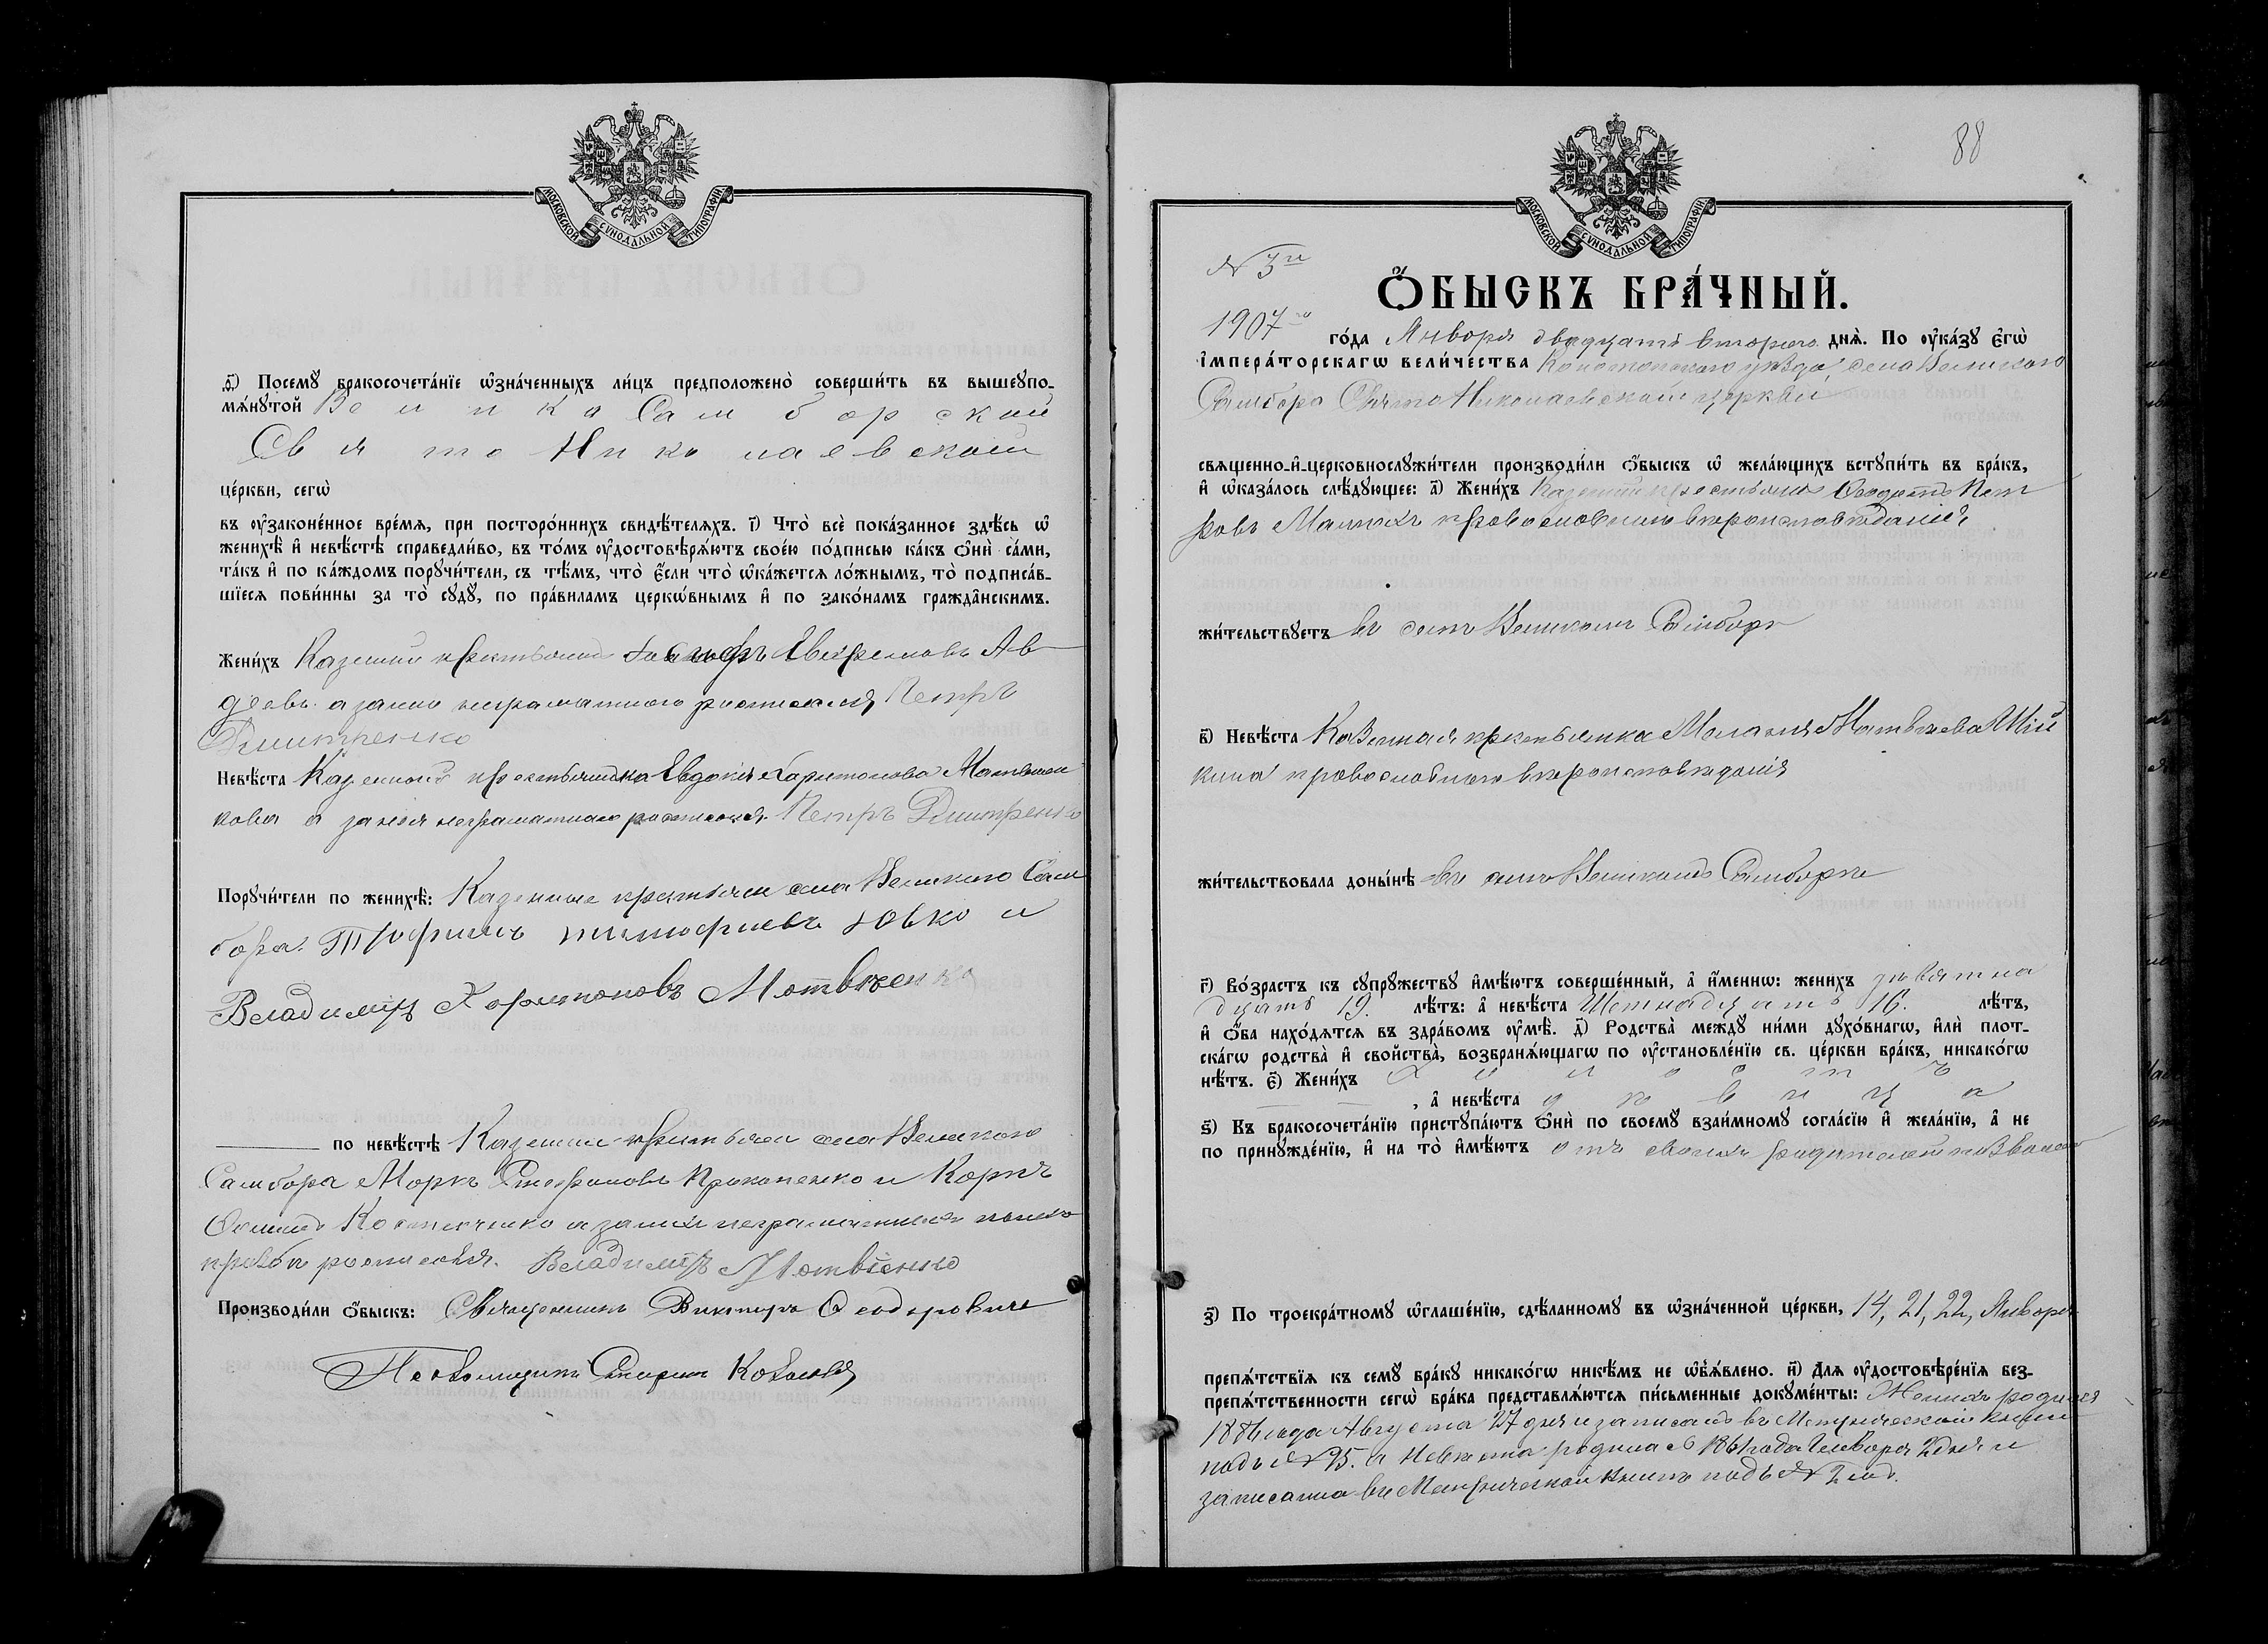 МОСКОВСКОЙ СѴНОДАЛЬНОЙ ТИПОГРАФІИ
ѳ҃) Посемꙋ̀ бракосочета́нїе ѡ҆зна́ченныхъ ли́цъ предположено̀ соверши́ть въ вышеꙋпо-
мѧ́нꙋтой Велико Самборской
Свято Николаевской
це́ркви, сегѡ̀
въ ᲂу҆законе́нное вре́мѧ, при посторо́ннихъ свидѣ́телѧхъ. і҃) Что̀ всѐ пока́занное здѣ́сь ѡ҆
женихѣ̀ и҆ невѣ́стѣ справедли́во, въ то́мъ ᲂу҆достовѣрѧ́ютъ свое́ю по́дписью ка́къ ѻ҆нѝ са́ми,
та́къ и҆ по ка́ждомъ порꙋчи́тели, съ тѣ́мъ, что̀ є҆́сли что̀ ѡ҆ка́жетсѧ ло́жнымъ, то̀ подписа́в-
шїесѧ пови́нны за то̀ сꙋдꙋ̀, по пра́виламъ церкѡ́внымъ и҆ по зако́намъ гражда̑нскимъ.
Жени́хъ Казенный крестьянин Іосифъ Евфремовъ Ав
деевъ а за него неграматного росписался Петръ
Дмитренко
Невѣ́ста Казенная крестьянка Евдокія Харитонова Матвіен
кова а за нея неграматною росписался Петръ Дмитренко
Порꙋчи́тели по женихѣ̀: Казенные крестьяне села Великого Сам
бора: Трофимъ тимофиевъ Ювко и
Владимиръ Харитоновъ Мотвіенко
по невѣ́стѣ Казенные крестьяне села Великого
Самбора Маркъ Стефановъ Прокопенко и Корнъ
Костюченко а за них неграматныхъ
росписався. Владимиръ Мотвіенко
Производи́ли ѻ҆́быскъ: Священникъ Викторъ Ѳеодоровичъ
Псаломщикъ Спиридон
88
МОСКОВСКОЙ СѴНОДАЛЬНОЙ ТИПОГРАФІИ
№ 3й
Ѻ҆́БЫСКЪ БРА́ЧНЫЙ.
1907го го́да Января двадцать второго днѧ̀. По ᲂу҆ка́зꙋ є҆гѡ̀
і҆мпера́торскагѡ вели́чества Конотопского уѣзда, села Великого
Самбора Свято Николаевской церкви
свѧщенно-и҆-церковнослꙋжи́тели производи́ли ѻ҆́быскъ ѡ҆ жела́ющихъ встꙋпи́ть въ бра́къ,
и҆ ѡ҆каза́лось слѣ́дꙋющее: а҃) Жени́хъ Казенный крестьянинъ Ѳеодотъ Пет
ровъ Малыхъ православного вероисповеданія
жи́тельствꙋетъ въ селе Великомъ Самборе
в҃) Невѣ́ста Казенная крестьянка Меланія Матвѣева Шій
кина православного вероисповеданія
жи́тельствовала доны́нѣ въ селе Великомъ Самборе
г҃) Во́зрастъ къ сꙋпрꙋ́жествꙋ и҆мѣ́ютъ соверше́нный, а҆ и҆́менно: жени́хъ девятна
дцать 19. лѣ́тъ: а҆ невѣ́ста Шетнадцать 16. лѣ́тъ,
и҆ ѻ҆́ба нахо́дѧтсѧ въ здра́вомъ ᲂу҆мѣ̀. д҃) Родства̀ междꙋ ни́ми дꙋхо́внагѡ, и҆лѝ плот-
ска́гѡ родства̀ и҆ сво́йства, возбранѧ́ющагѡ по ᲂу҆становле́нїю св. це́ркви бра́къ, никако́гѡ
нѣ́тъ. є҃) Жени́хъ холостъ
, а҆ невѣ́ста девица
ѕ҃) Къ бракосочета́нїю пристꙋпа́ютъ ѻ҆нѝ по своемꙋ̀ взаи́мномꙋ согла́сїю и҆ жела́нїю, а҆ не
по принꙋжде́нїю, и҆ на то̀ и҆мѣ́ютъ отъ своихъ родителей позволение
з҃) По троекра́тномꙋ ѡ҆глаше́нїю, сдѣ́ланномꙋ въ ѡ҆зна́ченной це́ркви, 14, 21, 22, Января
препѧ́тствїѧ къ семꙋ̀ бра́кꙋ никако́гѡ никѣ́мъ не ѡ҆б̾ѧ́влено. и҃) Длѧ ᲂу҆достовѣре́нїѧ без-
препѧ́тственности сегѡ̀ бра́ка представлѧ́ютсѧ пи́сьменные докꙋме́нты: Женихъ родился
года Августа 27 дня и записанъ въ Метрической книге
подъ № 95. а Невеста родилась года Генваря 2 дня и
записанна въ Метрической книгѣ подъ № 2мъ.